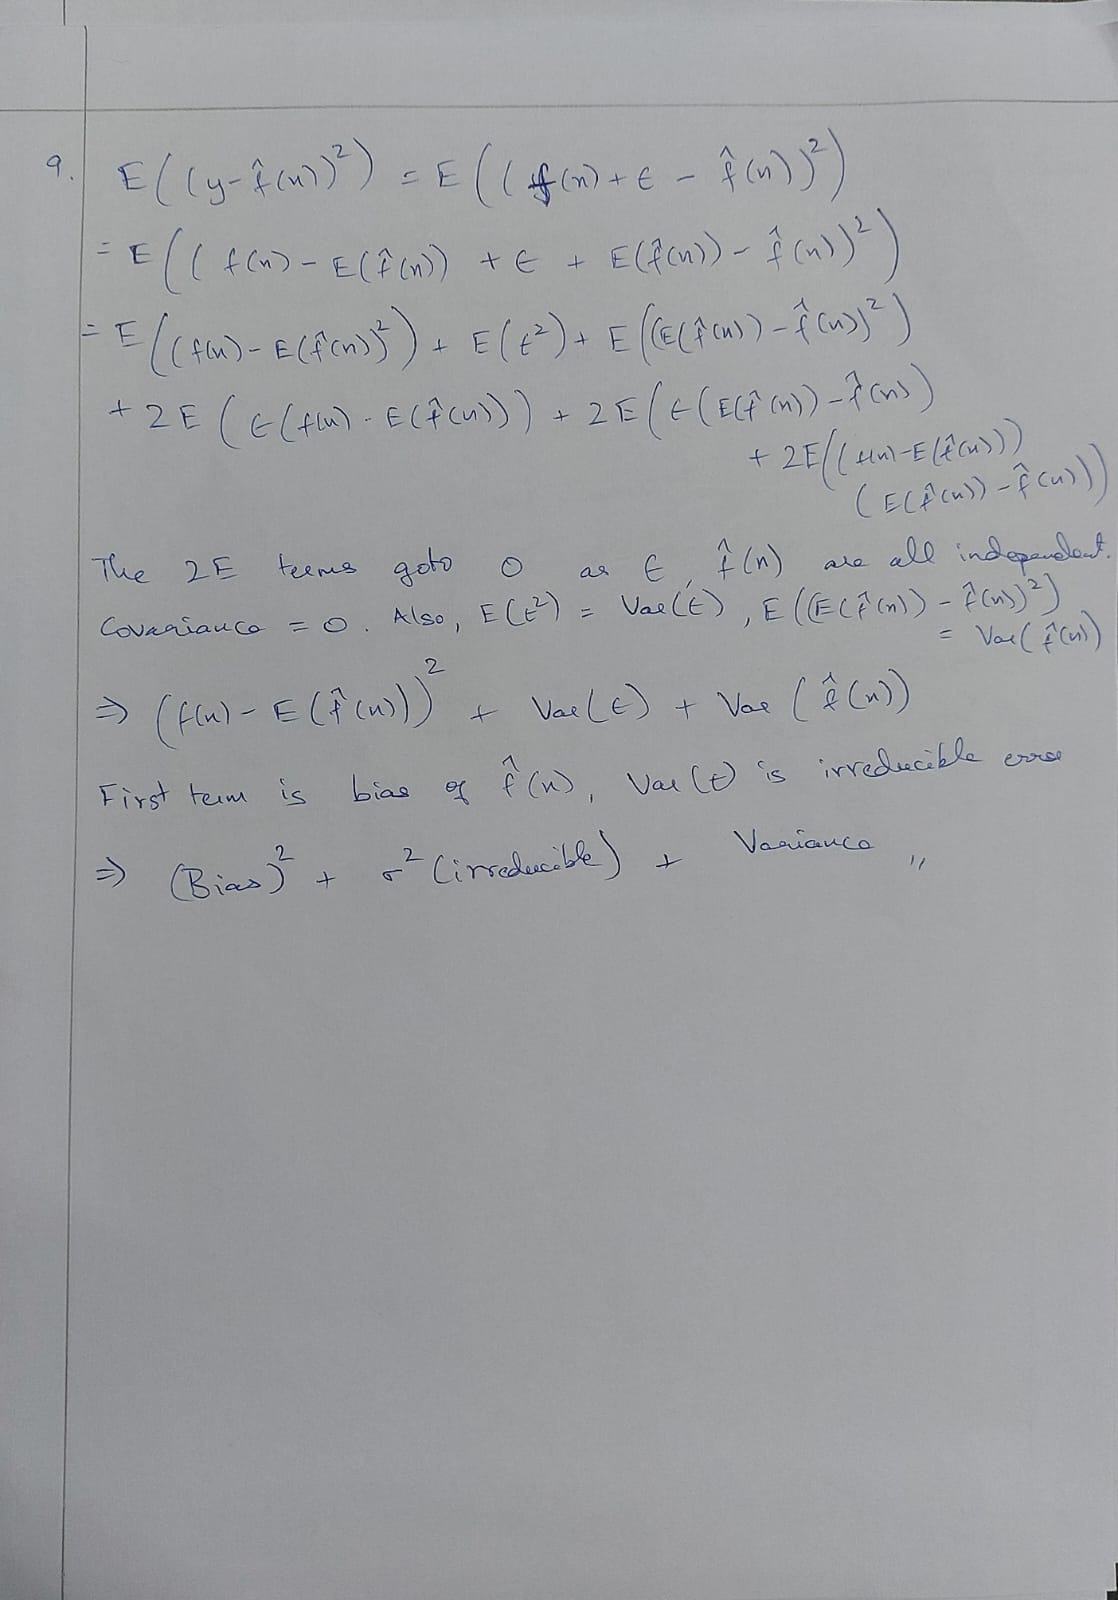 9. E((y-f̂(x))²) = E((f(x)+ϵ - f̂(x))²)
= E((f(x) - E(f̂(x)) + ϵ + E(f̂(x)) - f̂(x))²)
= E((f(x) - E(f̂(x))²) + E(ϵ²) + E((E(f̂(x)) - f̂(x))²)
+ 2E(ϵ(f(x) - E(f̂(x))) + 2E(ϵ(E(f̂(x)) - f̂(x))
+ 2E((f(x)-E(f̂(x)))
(E(f̂(x)) - f̂(x)))
The 2E terms goto 0 as ϵ, f̂(x) are all independent.
Covariance = 0. Also, E(ϵ²) = Var(ϵ), E((E(f̂(x)) - f̂(x))²)
= Var(f̂(x))
⇒ (f(x) - E(f̂(x)))² + Var(ϵ) + Var(f̂(x))
First term is bias of f̂(x), Var(ϵ) is irreducible error
⇒ (Bias)² + σ² (irreducible) + Variance //